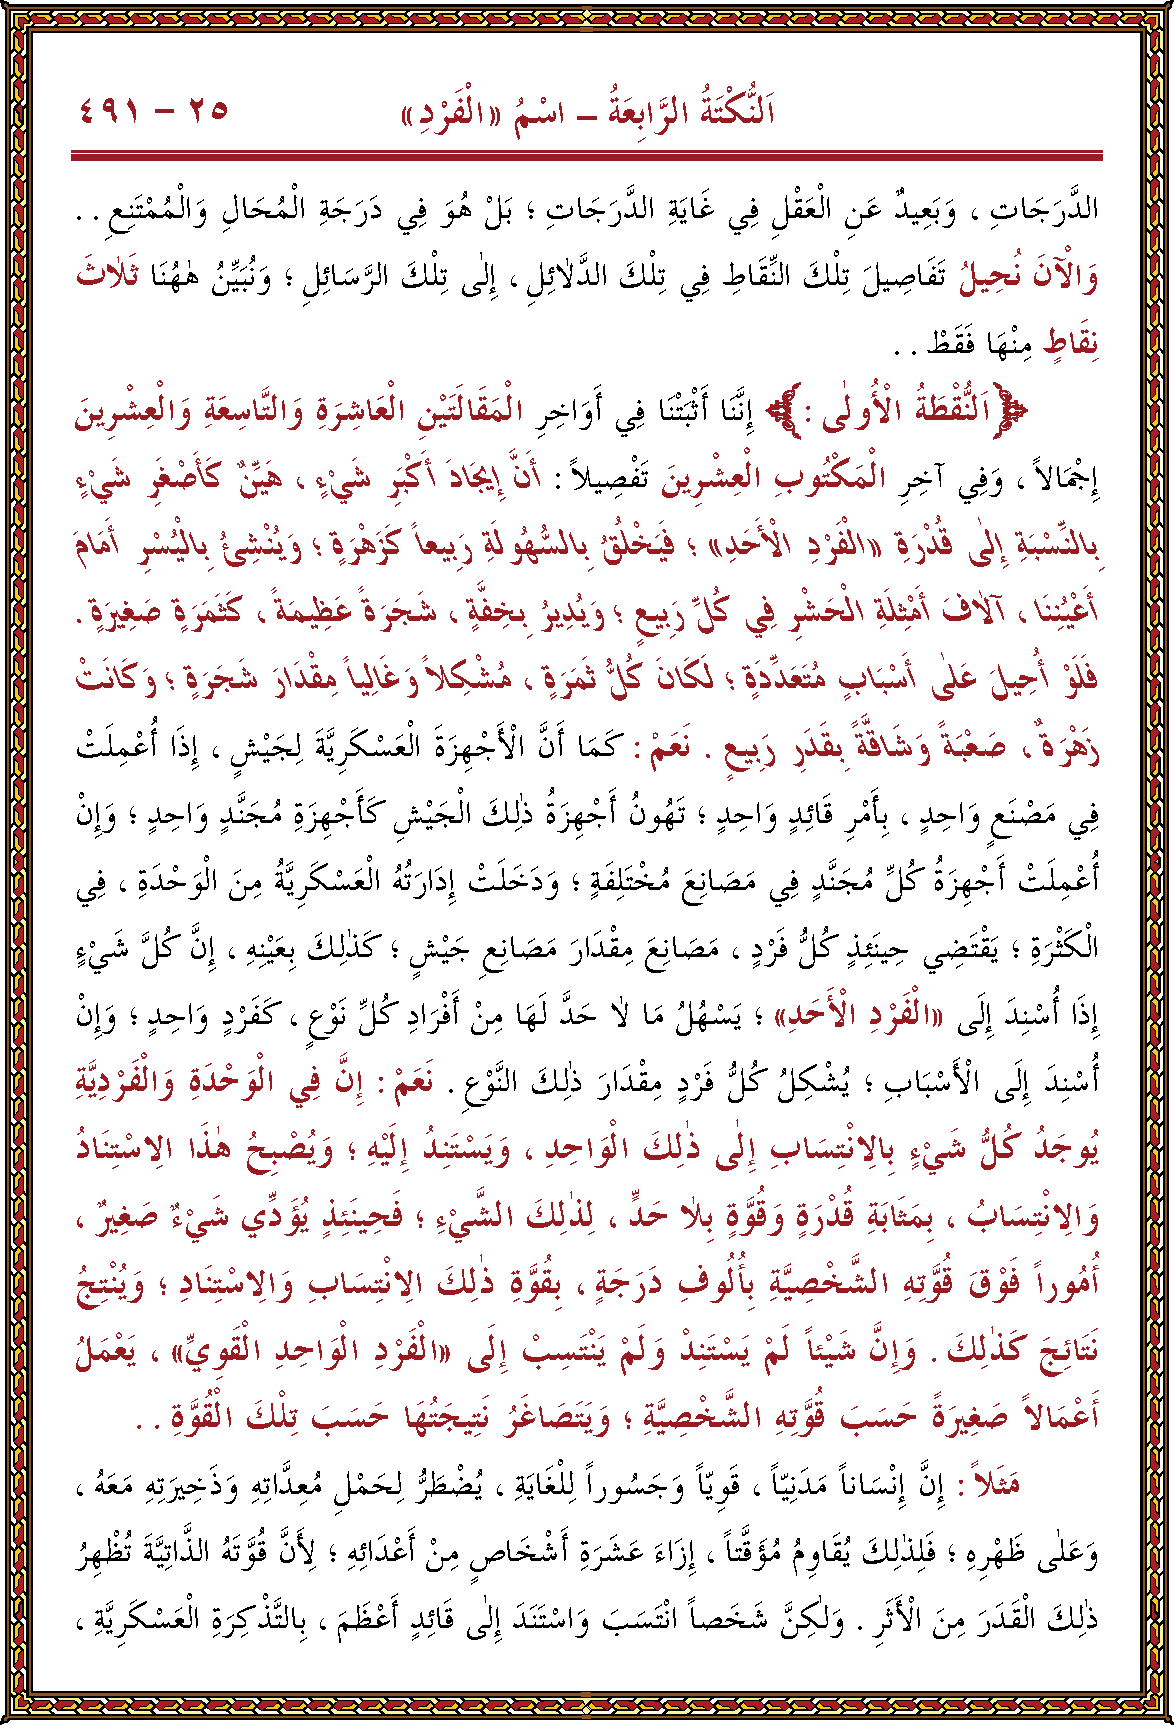 اَلنُّكْتَةُ الرَّابِعَةُ – اسْمُ «الْفَرْدِ» ٢٥ – ٤٩١
الدَّرَجَاتِ ، وَبَعِيدٌ عَنِ الْعَقْلِ فِي غَايَةِ الدَّرَجَاتِ ؛ بَلْ هُوَ فِي دَرَجَةِ الْمُحَالِ وَالْمُمْتَنِعِ . .
وَالْآنَ نُحِيلُ تَفَاصِيلَ تِلْكَ النِّقَاطِ فِي تِلْكَ الدَّلاَئِلِ ، إِلٰى تِلْكَ الرَّسَائِلِ ؛ وَنُبَيِّنُ هٰهُنَا ثَلاَثَ
نِقَاطٍ مِنْهَا فَقَطْ . .
﴿اَلنُّقْطَةُ الْأُولٰى :﴾ إِنَّنَا أَثْبَتْنَا فِي أَوَاخِرِ الْمَقَالَتَيْنِ الْعَاشِرَةِ وَالتَّاسِعَةِ وَالْعِشْرِينَ
إِجْمَالاً ، وَفِي آخِرِ الْمَكْتُوبِ الْعِشْرِينَ تَفْصِيلاً : أَنَّ إِيجَادَ أَكْبَرِ شَيْءٍ ، هَيِّنٌ كَأَصْغَرِ شَيْءٍ
بِالنِّسْبَةِ إِلٰى قُدْرَةِ «الْفَرْدِ الْأَحَدِ» ؛ فَيَخْلُقُ بِالسُّهُولَةِ رَبِيعاً كَزَهْرَةٍ ؛ وَيُنْشِئُ بِالْيُسْرِ أَمَامَ
أَعْيُنِنَا ، آلاَفَ أَمْثِلَةِ الْحَشْرِ فِي كُلِّ رَبِيعٍ ؛ وَيُدِيرُ بِخِفَّةٍ ، شَجَرَةً عَظِيمَةً ، كَثَمَرَةٍ صَغِيرَةٍ .
فَلَوْ أُحِيلَ عَلٰى أَسْبَابٍ مُتَعَدِّدَةٍ ؛ لَكَانَ كُلُّ ثَمَرَةٍ ، مُشْكِلاً وَغَالِياً مِقْدَارَ شَجَرَةٍ ؛ وَكَانَتْ
زَهْرَةٌ ، صَعْبَةً وَشَاقَّةً بِقَدَرِ رَبِيعٍ . نَعَمْ : كَمَا أَنَّ الْأَجْهِزَةَ الْعَسْكَرِيَّةَ لِجَيْشٍ ، إِذَا أُعْمِلَتْ
فِي مَصْنَعٍ وَاحِدٍ ، بِأَمْرِ قَائِدٍ وَاحِدٍ ؛ تَهُونُ أَجْهِزَةُ ذٰلِكَ الْجَيْشِ كَأَجْهِزَةِ مُجَنَّدٍ وَاحِدٍ ؛ وَإِنْ
أُعْمِلَتْ أَجْهِزَةُ كُلِّ مُجَنَّدٍ فِي مَصَانِعَ مُخْتَلِفَةٍ ؛ وَدَخَلَتْ إِدَارَتُهُ الْعَسْكَرِيَّةُ مِنَ الْوَحْدَةِ ، فِي
الْكَثْرَةِ ؛ يَقْتَضِي حِينَئِذٍ كُلُّ فَرْدٍ ، مَصَانِعَ مِقْدَارَ مَصَانِعِ جَيْشٍ ؛ كَذٰلِكَ بِعَيْنِهِ ، إِنَّ كُلَّ شَيْءٍ
إِذَا أُسْنِدَ إِلَى «الْفَرْدِ الْأَحَدِ» ؛ يَسْهُلُ مَا لاَ حَدَّ لَهَا مِنْ أَفْرَادِ كُلِّ نَوْعٍ ، كَفَرْدٍ وَاحِدٍ ؛ وَإِنْ
أُسْنِدَ إِلَى الْأَسْبَابِ ؛ يُشْكِلُ كُلُّ فَرْدٍ مِقْدَارَ ذٰلِكَ النَّوْعِ . نَعَمْ : إِنَّ فِي الْوَحْدَةِ وَالْفَرْدِيَّةِ
يُوجَدُ كُلُّ شَيْءٍ بِالِانْتِسَابِ إِلٰى ذٰلِكَ الْوَاحِدِ ، وَيَسْتَنِدُ إِلَيْهِ ؛ وَيُصْبِحُ هٰذَا الِاسْتِنَادُ
وَالِانْتِسَابُ ، بِمَثَابَةِ قُدْرَةٍ وَقُوَّةٍ بِلاَ حَدٍّ ، لِذٰلِكَ الشَّيْءِ ؛ فَحِينَئِذٍ يُؤَدِّي شَيْءٌ صَغِيرٌ ،
أُمُوراً فَوْقَ قُوَّتِهِ الشَّخْصِيَّةِ بِأُلُوفِ دَرَجَةٍ ، بِقُوَّةِ ذٰلِكَ الِانْتِسَابِ وَالِاسْتِنَادِ ؛ وَيُنْتِجُ
نَتَائِجَ كَذٰلِكَ . وَإِنَّ شَيْئاً لَمْ يَسْتَنِدْ وَلَمْ يَنْتَسِبْ إِلَى «الْفَرْدِ الْوَاحِدِ الْقَوِيِّ» ، يَعْمَلُ
أَعْمَالاً صَغِيرَةً حَسَبَ قُوَّتِهِ الشَّخْصِيَّةِ ؛ وَيَتَصَاغَرُ نَتِيجَتُهَا حَسَبَ تِلْكَ الْقُوَّةِ . .
مَثَلاً : إِنَّ إِنْسَاناً مَدَنِيّاً ، قَوِيّاً وَجَسُوراً لِلْغَايَةِ ، يُضْطَرُّ لِحَمْلِ مُعِدَّاتِهِ وَذَخِيرَتِهِ مَعَهُ ،
وَعَلٰى ظَهْرِهِ ؛ فَلِذٰلِكَ يُقَاوِمُ مُؤَقَّتاً ، إِزَاءَ عَشَرَةِ أَشْخَاصٍ مِنْ أَعْدَائِهِ ؛ لِأَنَّ قُوَّتَهُ الذَّاتِيَّةَ تُظْهِرُ
ذٰلِكَ الْقَدَرَ مِنَ الْأَثَرِ . وَلٰكِنَّ شَخَصاً انْتَسَبَ وَاسْتَنَدَ إِلٰى قَائِدٍ أَعْظَمَ ، بِالتَّذْكِرَةِ الْعَسْكَرِيَّةِ ،